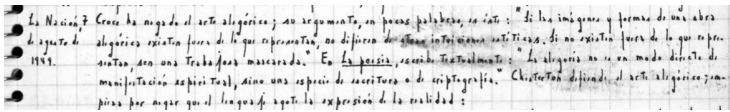 La Nación, 7 Croce ha negado el arte alegórico; su argumento, en pocas palabras, es éste: "Si las imágenes y formas de una obra
de agosto de alegórica existen fuera de lo que representan, no difieren de otras intuiciones estéticas. Si no existen fuera de lo que repre-
1949. sentan, son una trabajosa mascarada. En La poesia, escribe textualmente: "La alegoría no es un modo directo de
manifestación espiritual, sino una especie de escritura o de criptografía." Chesterton defiende el arte alegórico; em-
pieza por negar que el lenguaje agote la expresión de la realidad: